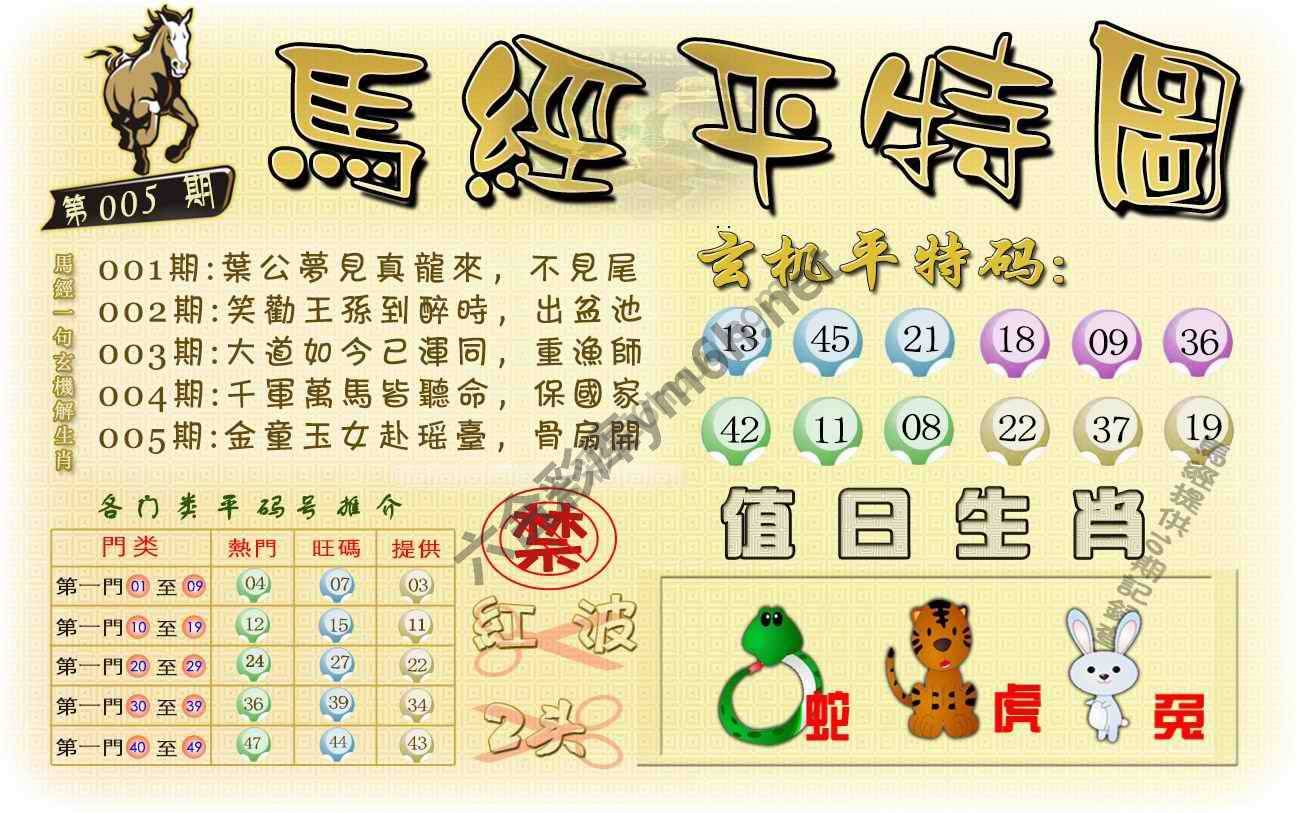 馬經平特圖
第005期
馬經一句玄機解生肖
001期:葉公夢見真龍來，不見尾
002期:笑勸王孫到醉時，出盆池
003期:大道如今已渾同，重漁師
004期:千軍萬馬皆聽命，保國家
005期:金童玉女赴瑶臺，骨扇開
玄机平特码:
13 45 21 18 09 36
42 11 08 22 37 19
各门类平码号推介
門类 熱門 旺碼 提供
第一門 01 至 09 04 07 03
第一門 10 至 19 12 15 11
第一門 20 至 29 24 27 22
第一門 30 至 39 36 39 34
第一門 40 至 49 47 44 43
禁
紅波
2头
值日生肖
蛇 虎 兔